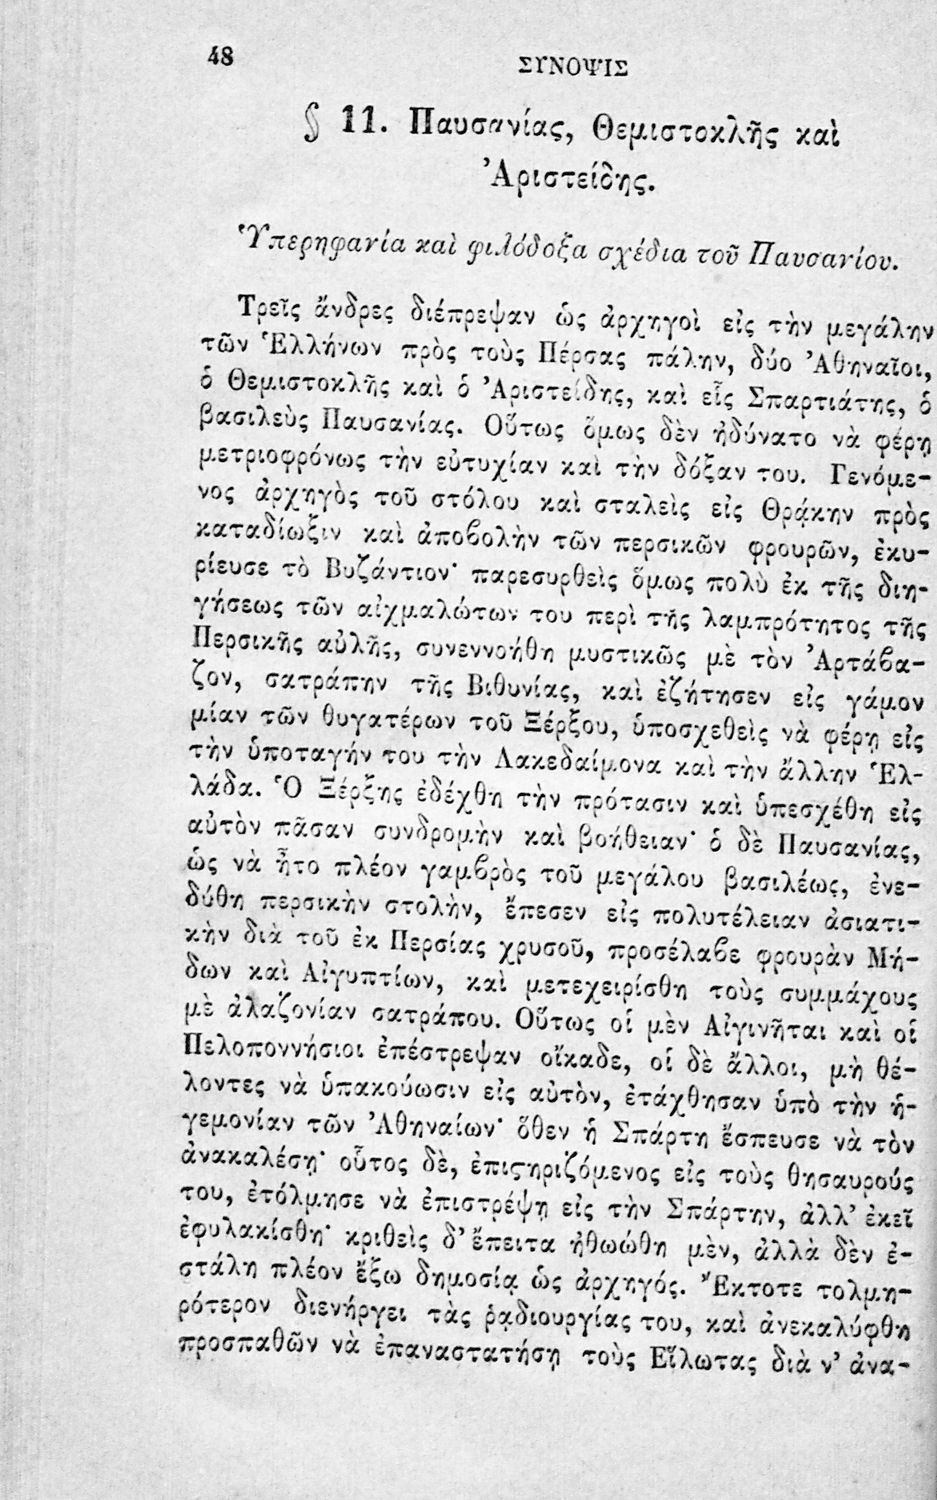 48
ΣΥΝΟΨΙΣ
§ 11. Παυσανίας, Θεμιστοκλῆς καὶ
Ἀριστείδης.
Ὑπερηφανία καὶ φιλόδοξα σχέδια τοῦ Παυσανίου.
Τρεῖς ἄνδρες διέπρεψαν ὡς ἀρχηγοὶ εἰς τὴν μεγάλην
τῶν Ἑλλήνων πρὸς τοὺς Πέρσας πάλην, δύο Ἀθηναῖοι,
ὁ Θεμιστοκλῆς καὶ ὁ Ἀριστείδης, καὶ εἷς Σπαρτιάτης, ὁ
βασιλεὺς Παυσανίας. Οὗτως ὅμως δὲν ἠδύνατο νὰ φέρῃ
μετριοφρόνως τὴν εὐτυχίαν καὶ τὴν δόξαν του. Γενόμε-
νος ἀρχηγὸς τοῦ στόλου καὶ σταλεὶς εἰς Θρᾴκην πρὸς
καταδίωξιν καὶ ἀποβολὴν τῶν περσικῶν φρουρῶν, ἐκυ-
ρίευσε τὸ Βυζάντιον· παρεσυρθεὶς ὅμως πολὺ ἐκ τῆς διη-
γήσεως τῶν αἰχμαλώτων του περὶ τῆς λαμπρότητος τῆς
Περσικῆς αὐλῆς, συνεννοήθη μυστικῶς μὲ τὸν Ἀρτάβα-
ζον, σατράπην τῆς Βιθυνίας, καὶ ἐζήτησεν εἰς γάμον
μίαν τῶν θυγατέρων τοῦ Ξέρξου, ὑποσχεθεὶς νὰ φέρῃ εἰς
τὴν ὑποταγήν του τὴν Λακεδαίμονα καὶ τὴν ἄλλην Ἑλ-
λάδα. Ὁ Ξέρξης ἐδέχθη τὴν πρότασιν καὶ ὑπεσχέθη εἰς
αὐτὸν πᾶσαν συνδρομὴν καὶ βοήθειαν· ὁ δὲ Παυσανίας,
ὡς νὰ ἦτο πλέον γαμβρὸς τοῦ μεγάλου βασιλέως, ἐνε-
δύθη περσικὴν στολὴν, ἔπεσεν εἰς πολυτέλειαν ἀσιατι-
κὴν διὰ τοῦ ἐκ Περσίας χρυσοῦ, προσέλαβε φρουρὰν Μή-
δων καὶ Αἰγυπτίων, καὶ μετεχειρίσθη τοὺς συμμάχους
μὲ ἀλαζονίαν σατράπου. Οὕτως οἱ μὲν Αἰγινῆται καὶ οἱ
Πελοποννήσιοι ἐπέστρεψαν οἴκαδε, οἱ δὲ ἄλλοι, μὴ θέ-
λοντες νὰ ὑπακούωσιν εἰς αὐτὸν, ἐτάχθησαν ὑπὸ τὴν ἡ-
γεμονίαν τῶν Ἀθηναίων· ὅθεν ἡ Σπάρτη ἔσπευσε νὰ τὸν
ἀνακαλέσῃ· οὗτος δὲ, ἐπιϛηριζόμενος εἰς τοὺς θησαυρούς
του, ἐτόλμησε νὰ ἐπιστρέψῃ εἰς τὴν Σπάρτην, ἀλλ' ἐκεῖ
ἐφυλακίσθη· κριθεὶς δ' ἔπειτα ἠθωώθη μὲν, ἀλλὰ δὲν ἐ-
στάλη πλέον ἔξω δημοσίᾳ ὡς ἀρχηγός. Ἔκτοτε τολμη-
ρότερον διενήργει τὰς ῥᾳδιουργίας του, καὶ ἀνεκαλύφθη
προσπαθῶν νὰ ἐπαναστατήσῃ τοὺς Εἵλωτας διὰ ν' ἀνα-